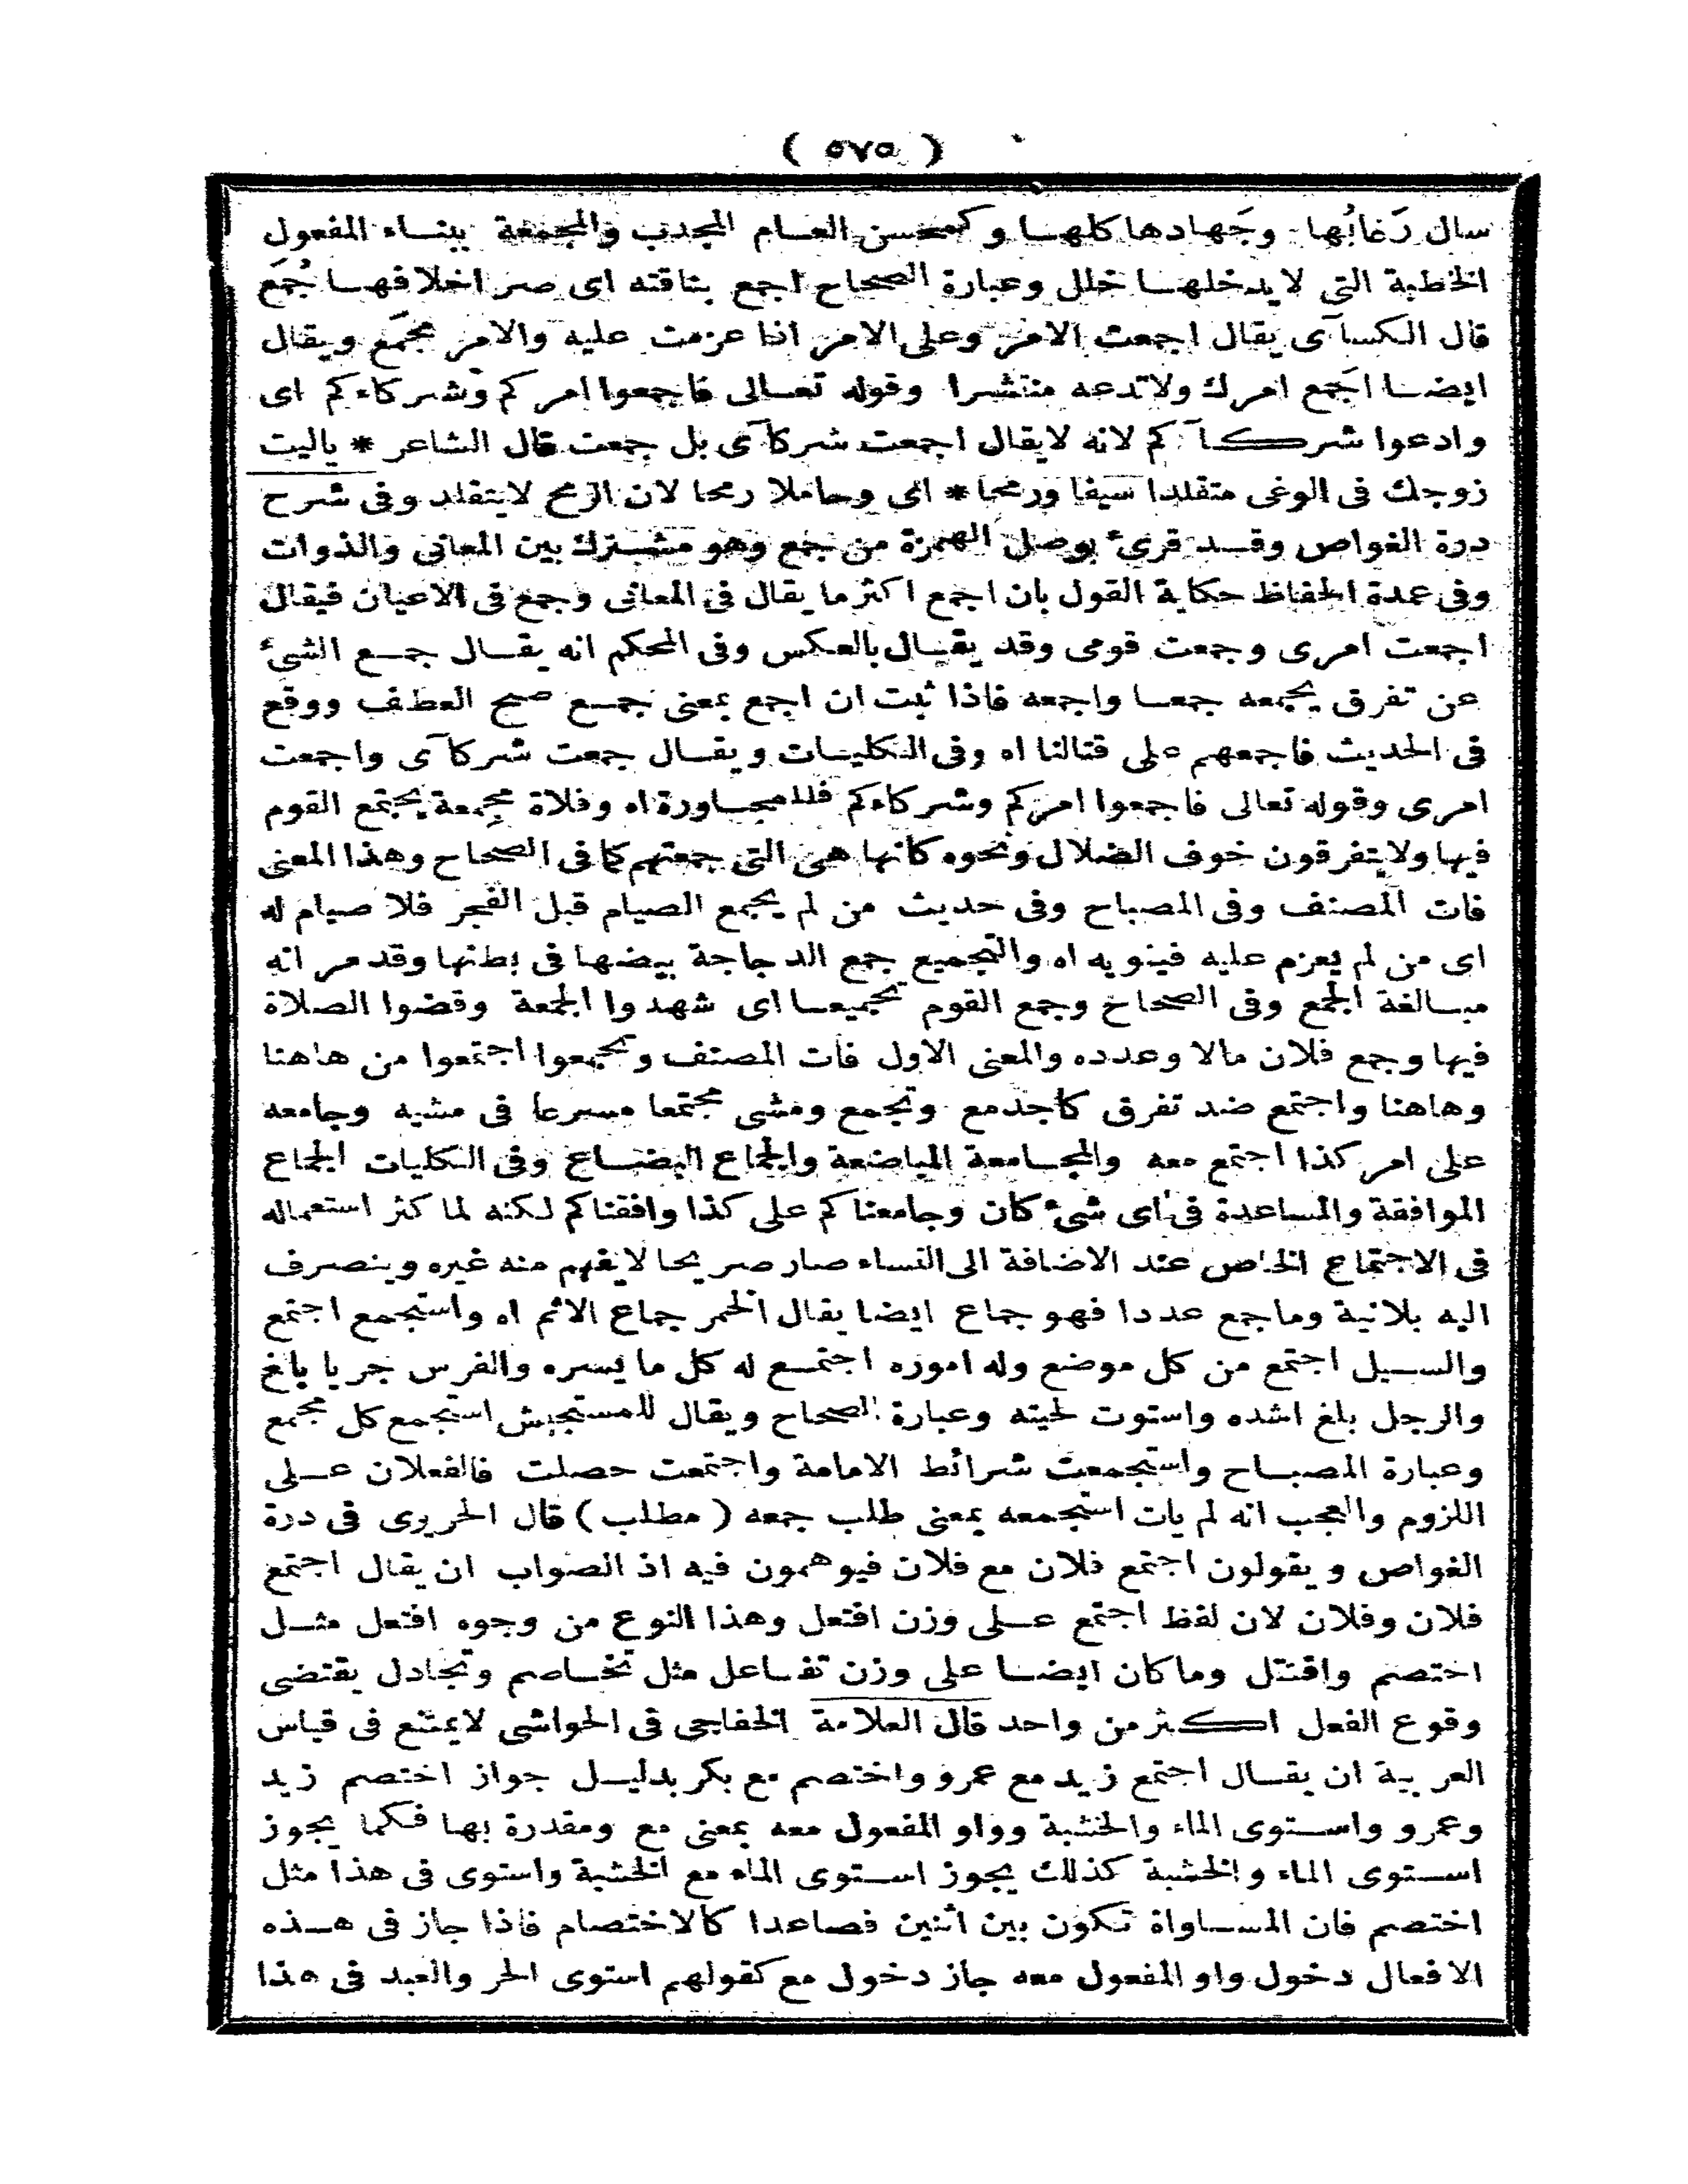 ( ٥٧٥ )
سال رَغابُها وجَهادها كلهـا وكمحسن العـام المجدب والمجمعة ببنـاء المفعول
الخطبة التى لايدخلهـا خلل وعبارة الصحاح اجمع بناقته اى صر اخلافهـا جُمَع
قال الكسآى يقال اجمعت الامر وعلى الامر اذا عزمت عليه والامر مجمَع ويقال
ايضـا اجَمع امرك ولاتدعه منتشرا وقوله تعـالى فاجمعوا امركم وشركاءكم اى
وادعوا شركـآكم لانه لايقال اجمعت شركآى بل جمعت قال الشاعر * ياليت
زوجك فى الوغى متقلدا سيفا ورمحا * اى وحاملا رمحا لان الرمح لايتقلد وفى شرح
درة الغواص وقـد قرئ بوصل الهمزة من جمع وهو مشـترك بين المعانى والذوات
وفى عمدة الحفاظ حكاية القول بان اجمع اكثر ما يقال فى المعانى وجمع فى الاعيان فيقال
اجمعت امرى وجمعت قومى وقد يقـال بالعكس وفى المحكم انه يقـال جمـع الشئ
عن تفرق يجمعه جمعـا واجمعه فاذا ثبت ان اجمع بمعنى جمـع صح العطف ووقع
فى الحديث فاجمعهم على قتالنا اه وفى الكليـات ويقـال جمعت شركآى واجمعت
امرى وقوله تعالى فاجمعوا امركم وشركاءكم فللمجـاورة اه وفلاة مجمِعة يجتمع القوم
فيها ولايتفرقون خوف الضلال ونحوه كانها هى التى جمعتهم كما فى الصحاح وهذا المعنى
فات المصنف وفى المصباح وفى حديث من لم يجمع الصيام قبل الفجر فلا صيام له
اى من لم يعزم عليه فينويه اه والتجميع جمع الدجاجة بيضها فى بطنها وقد مر انه
مبـالغة الجمع وفى الصحاح وجمع القوم تجميعـا اى شهدوا الجمعة وقضوا الصلاة
فيها وجمع فلان مالا وعدده والمعنى الاول فات المصنف وتجمعوا اجتمعوا من هاهنا
وهاهنا واجتمع ضد تفرق كاجدمع وتجمع ومشى مجتمعا مسرعا فى مشيه وجامعه
على امر كذا اجتمع معه والمجـامعة المباضعة والجماع البضـاع وفى الكليات الجماع
الموافقة والمساعدة فى اى شئ كان وجامعناكم على كذا وافقناكم لكنه لما كثر استعماله
فى الاجتماع الخاص عند الاضافة الى النساء صار صريحا لايفهم منه غيره وينصرف
اليه بلانية وماجمع عددا فهو جماع ايضا يقال الخمر جماع الاثم اه واستجمع اجتمع
والسـيل اجتمع من كل موضع وله اموره اجتمـع له كل ما يسره والفرس جريا بالغ
والرجل بلغ اشده واستوت لحيته وعبارة الصحاح ويقال للمستجيش استجمع كل مجمع
وعبارة المصبـاح واستجمعت شرائط الامامة واجتمعت حصلت فالفعلان عـلى
اللزوم والعجب انه لم يات استجمعه بمعنى طلب جمعه ( مطلب ) قال الحريرى فى درة
الغواص ويقولون اجتمع فلان مع فلان فيوهمون فيه اذ الصواب ان يقال اجتمع
فلان وفلان لان لفظ اجتمع عـلى وزن افتعل وهذا النوع من وجوه افتعل مثـل
اختصم واقتتل وماكان ايضـا على وزن تفـاعل مثل تخـاصم وتجادل يقتضى
وقوع الفعل اكـثر من واحد قال العلامة الخفاجى فى الحواشى لايمتنع فى قياس
العربية ان يقـال اجتمع زيد مع عمرو واختصم مع بكر بدليـل جواز اختصم زيد
وعمرو واسـتوى الماء والخشبة وواو المفعول معه بمعنى مع ومقدرة بها فكما يجوز
اسـتوى الماء والخشبة كذلك يجوز اسـتوى الماء مع الخشبة واستوى فى هذا مثل
اختصم فان المسـاواة تكون بين اثنين فصاعدا كالاختصام فاذا جاز فى هـذه
الافعال دخول واو المفعول معه جاز دخول مع كقولهم استوى الحر والعبد فى هذا